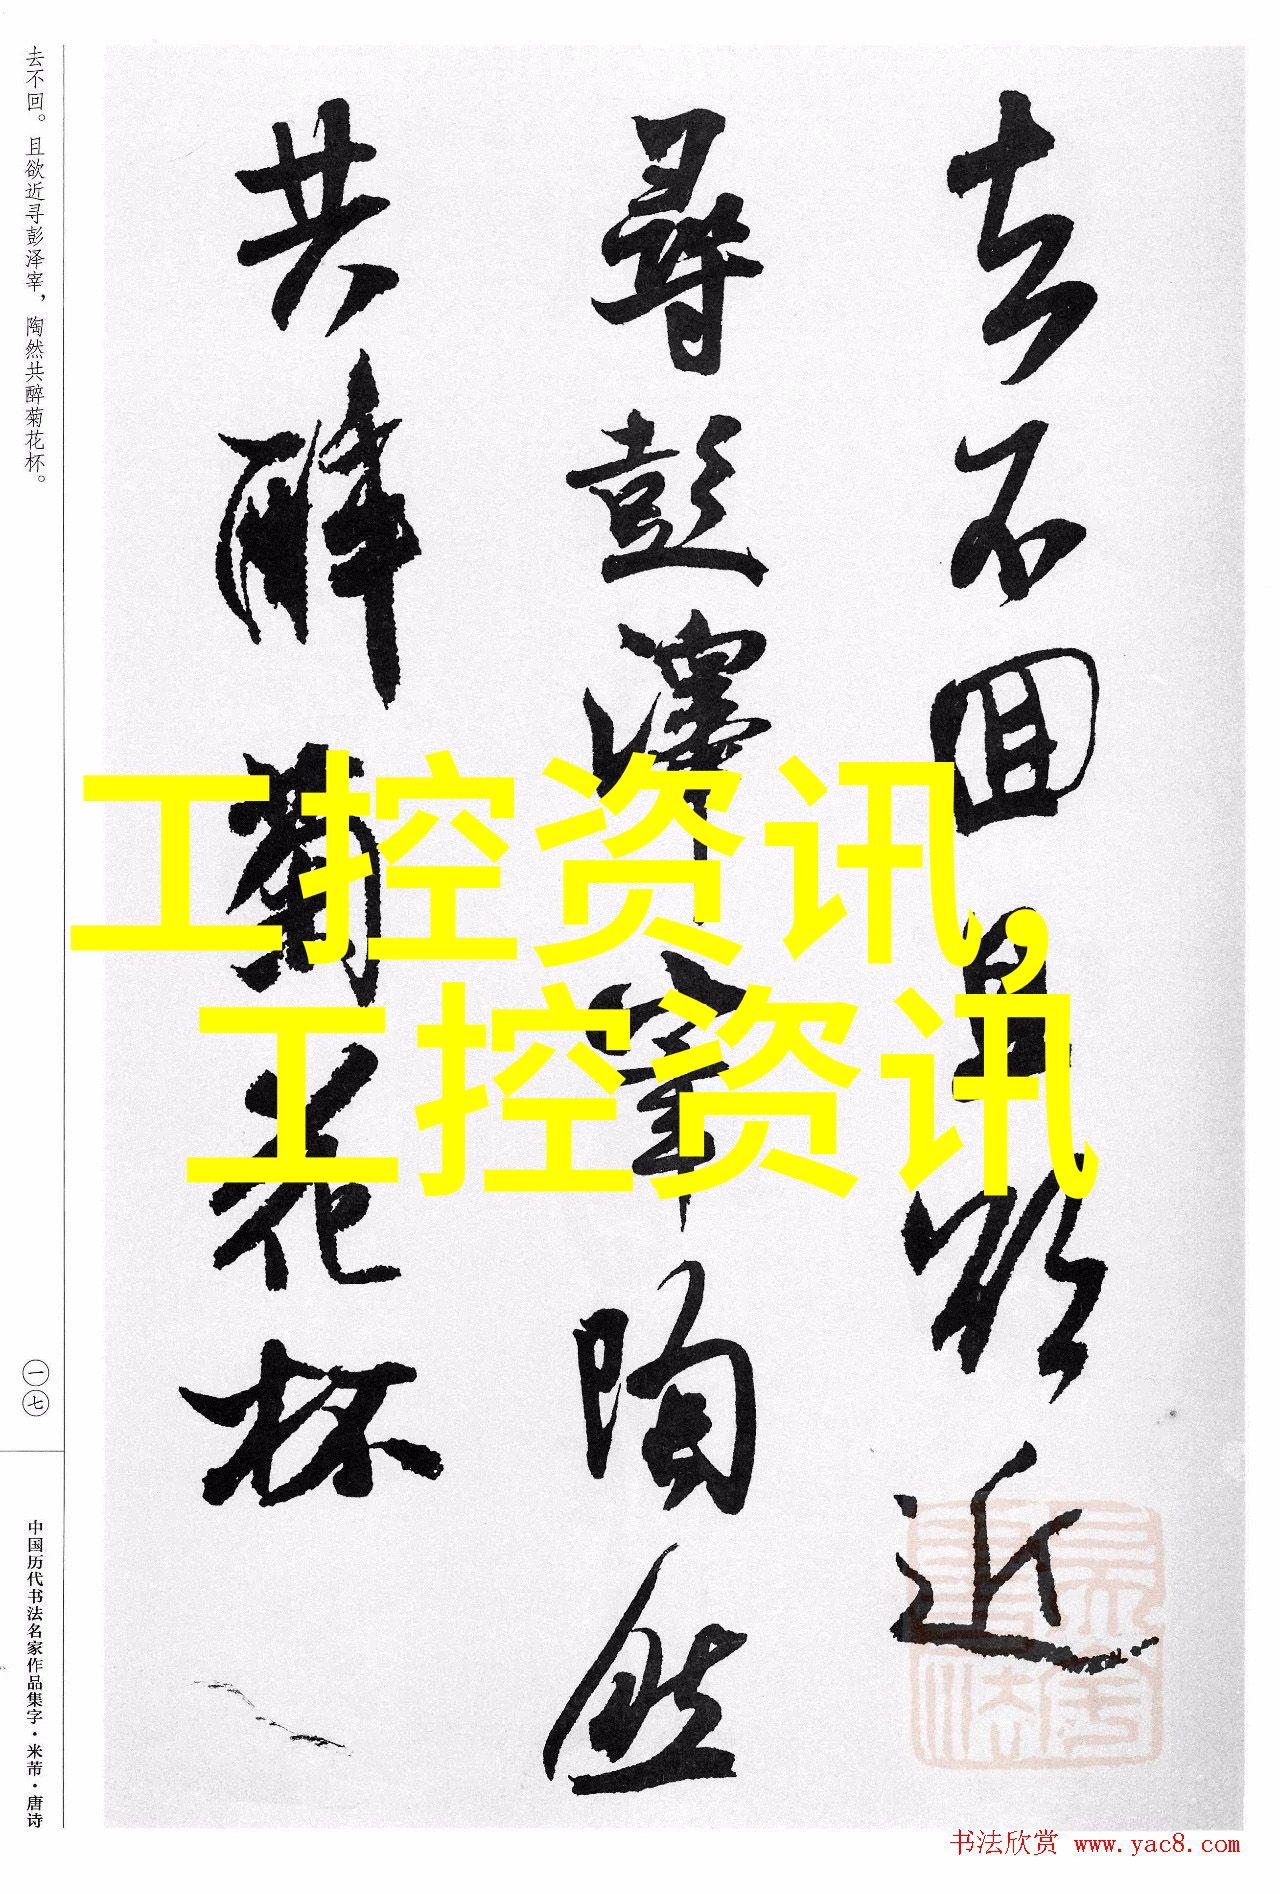 去不回且欲近
尋彭澤宰陶然
共醉菊花杯
去不回。且欲近寻彭泽宰，陶然共醉菊花杯。
一七
中国历代书法名家作品集字·米芾·唐诗
工控资讯,
工控资讯
书法欣赏 www.yac8.com